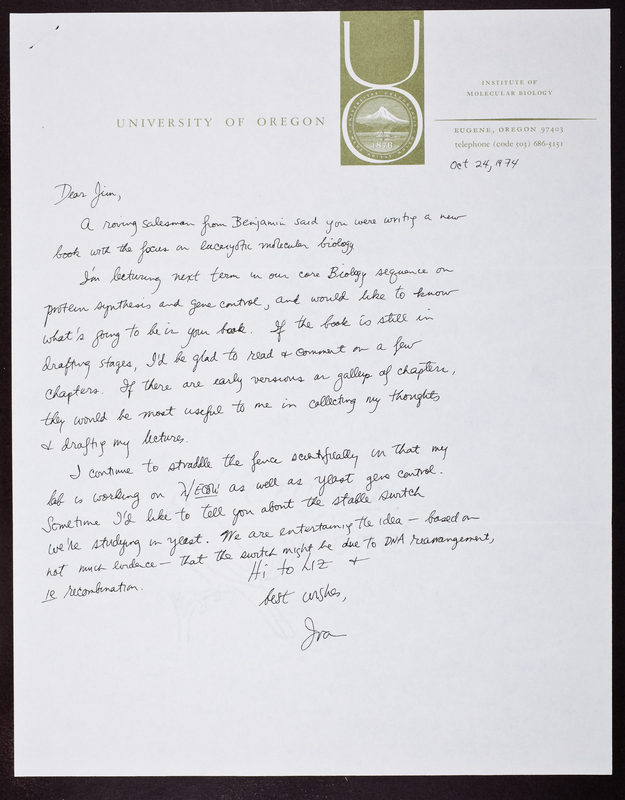 UO
1876
UNIVERSITY OF OREGON
INSTITUTE OF
MOLECULAR BIOLOGY
EUGENE, OREGON 97403
telephone (code 503) 686-5151
Oct 24, 1974
Dear Jim,
A roving salesman from Benjamin said you were writing a new
book with the focus on eucaryotic molecular biology
I'm lecturing next term in our core Biology sequence on
protein synthesis and gene control, and would like to know
what's going to be in your book. If the book is still in
drafting stages, I'd be glad to read & comment on a few
chapters. If there are early versions or galleys of chapters,
they would be most useful to me in collecting my thoughts
& drafting my lectures.
I continue to straddle the fence scientifically in that my
lab is working on λ/Ecoli as well as yeast gene control.
Sometime I'd like to tell you about the stable switch
we're studying in yeast. We are entertaining the idea – based on
not much evidence – that the switch might be due to DNA rearrangement,
ie recombination.
Hi to LIZ +
best wishes,
Ira